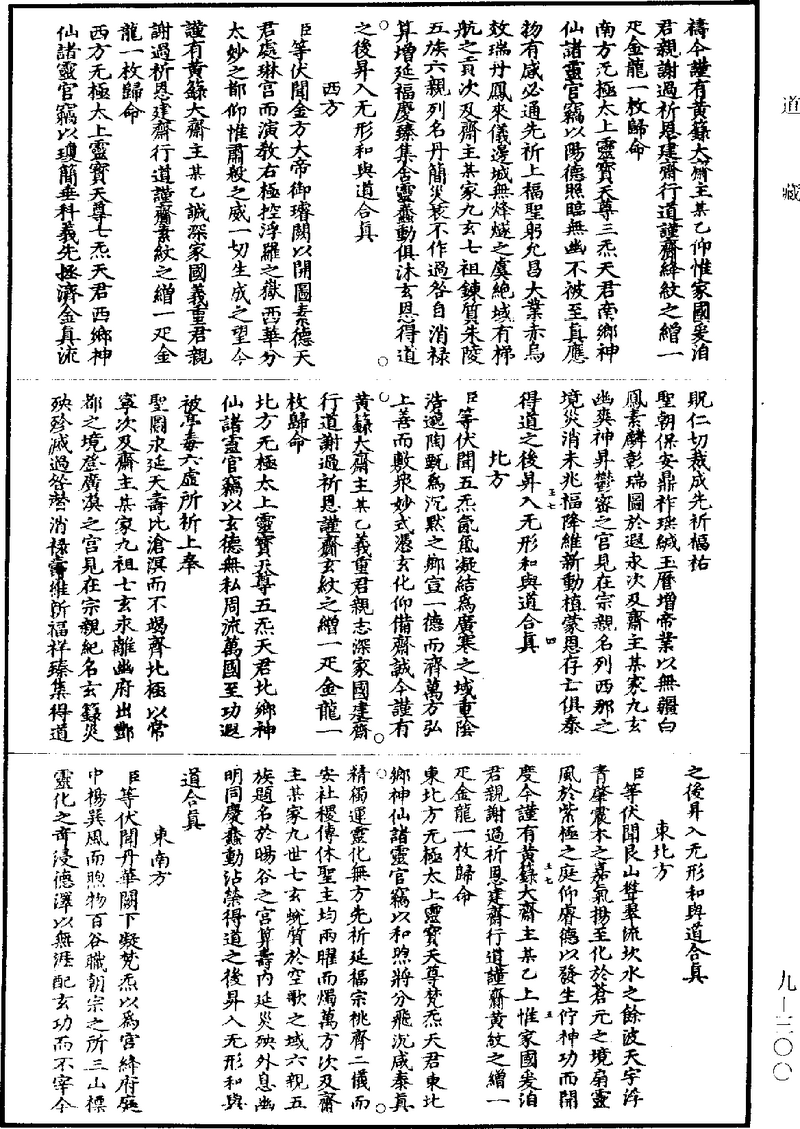 道藏
禱今謹有黃籙大齋主某乙仰惟家國爰洎
君親謝過祈恩建齋行道謹齎絳紋之繒一
疋金龍一枚歸命
南方无極太上靈寶天尊三炁天君南鄉神
仙諸靈官竊以陽德照臨無幽不被至真應
物有感必通先祈上福聖躬允昌大業赤烏
效瑞丹鳳來儀邊城無烽燧之虞絶域有梯
航之貢次及齋主某家九玄七祖鍊質朱陵
五族六親列名丹簡災衰不作過咎自消祿
算增延福慶臻集含靈蠢動俱沐玄恩得道
之後昇入无形和與道合真
西方
臣等伏聞金方大帝御璿闕以開圖素德天
君處琳宫而演教右極控浮羅之嶽西華分
太妙之都仰惟肅殺之威一切生成之望今
謹有黃籙大齋主某乙誠深家國義重君親
謝過祈恩建齋行道謹齎素紋之繒一疋金
龍一枚歸命
西方无極太上靈寶天尊七炁天君西鄉神
仙諸靈官竊以瓊簡垂科義先拯濟金真流
貺仁切裁成先祈福祐
聖朝保安鼎祚瑤緘玉曆增帝業以無疆白
鳳素麟彰瑞圖於遐永次及齋主某家九玄
幽爽神昇鬱密之宫見在宗親名列西那之
境災消未兆福降維新動植蒙恩存亡俱泰
得道之後昇入无形和與道合真
北方
臣等伏聞五炁氤氳凝結爲廣寒之域重陰
浩邈陶甄爲沉默之鄉宣一德而濟萬方弘
上善而敷衆妙式憑玄化仰備齋誠今謹有
黃籙大齋主某乙義重君親志深家國建齋
行道謝過祈恩謹齎玄紋之繒一疋金龍一
枚歸命
北方无極太上靈寶天尊五炁天君北鄉神
仙諸靈官竊以玄德無私周流萬國至功遐
被亭毒六虛所祈上奉
聖圖永延天壽比滄溟而不竭齊北極以常
寧次及齋主某家九祖七玄永離幽府出酆
都之境登廣漠之宫見在宗親紀名玄籙災
殃殄滅過咎潛消祿壽維新福祥臻集得道
之後昇入无形和與道合真
東北方
臣等伏聞艮山聳翠流坎水之餘波天宇浮
青肇震木之嘉氣揚至化於蒼元之境扇靈
風於紫極之庭仰睿德以發生佇神功而開
慶今謹有黃籙大齋主某乙上惟家國爰洎
君親謝過祈恩建齋行道謹齎黃紋之繒一
疋金龍一枚歸命
東北方无極太上靈寶天尊梵炁天君東北
鄉神仙諸靈官竊以和煦將分飛沉咸泰真
精獨運靈化無方先祈延福宗祧齊二儀而
安社稷傳休聖主均兩曜而燭萬方次及齋
主某家九世七玄蛻質於空歌之城六親五
族題名於暘谷之宫算壽内延災殃外息幽
明同慶蠢動沾榮得道之後昇入无形和與
道合真
東南方
臣等伏聞丹華闕下凝梵炁以爲宫絳府庭
中揚巽風而煦物百谷職朝宗之所三山標
靈化之奇浸德澤以無涯配玄功而不宰今
九—二〇〇